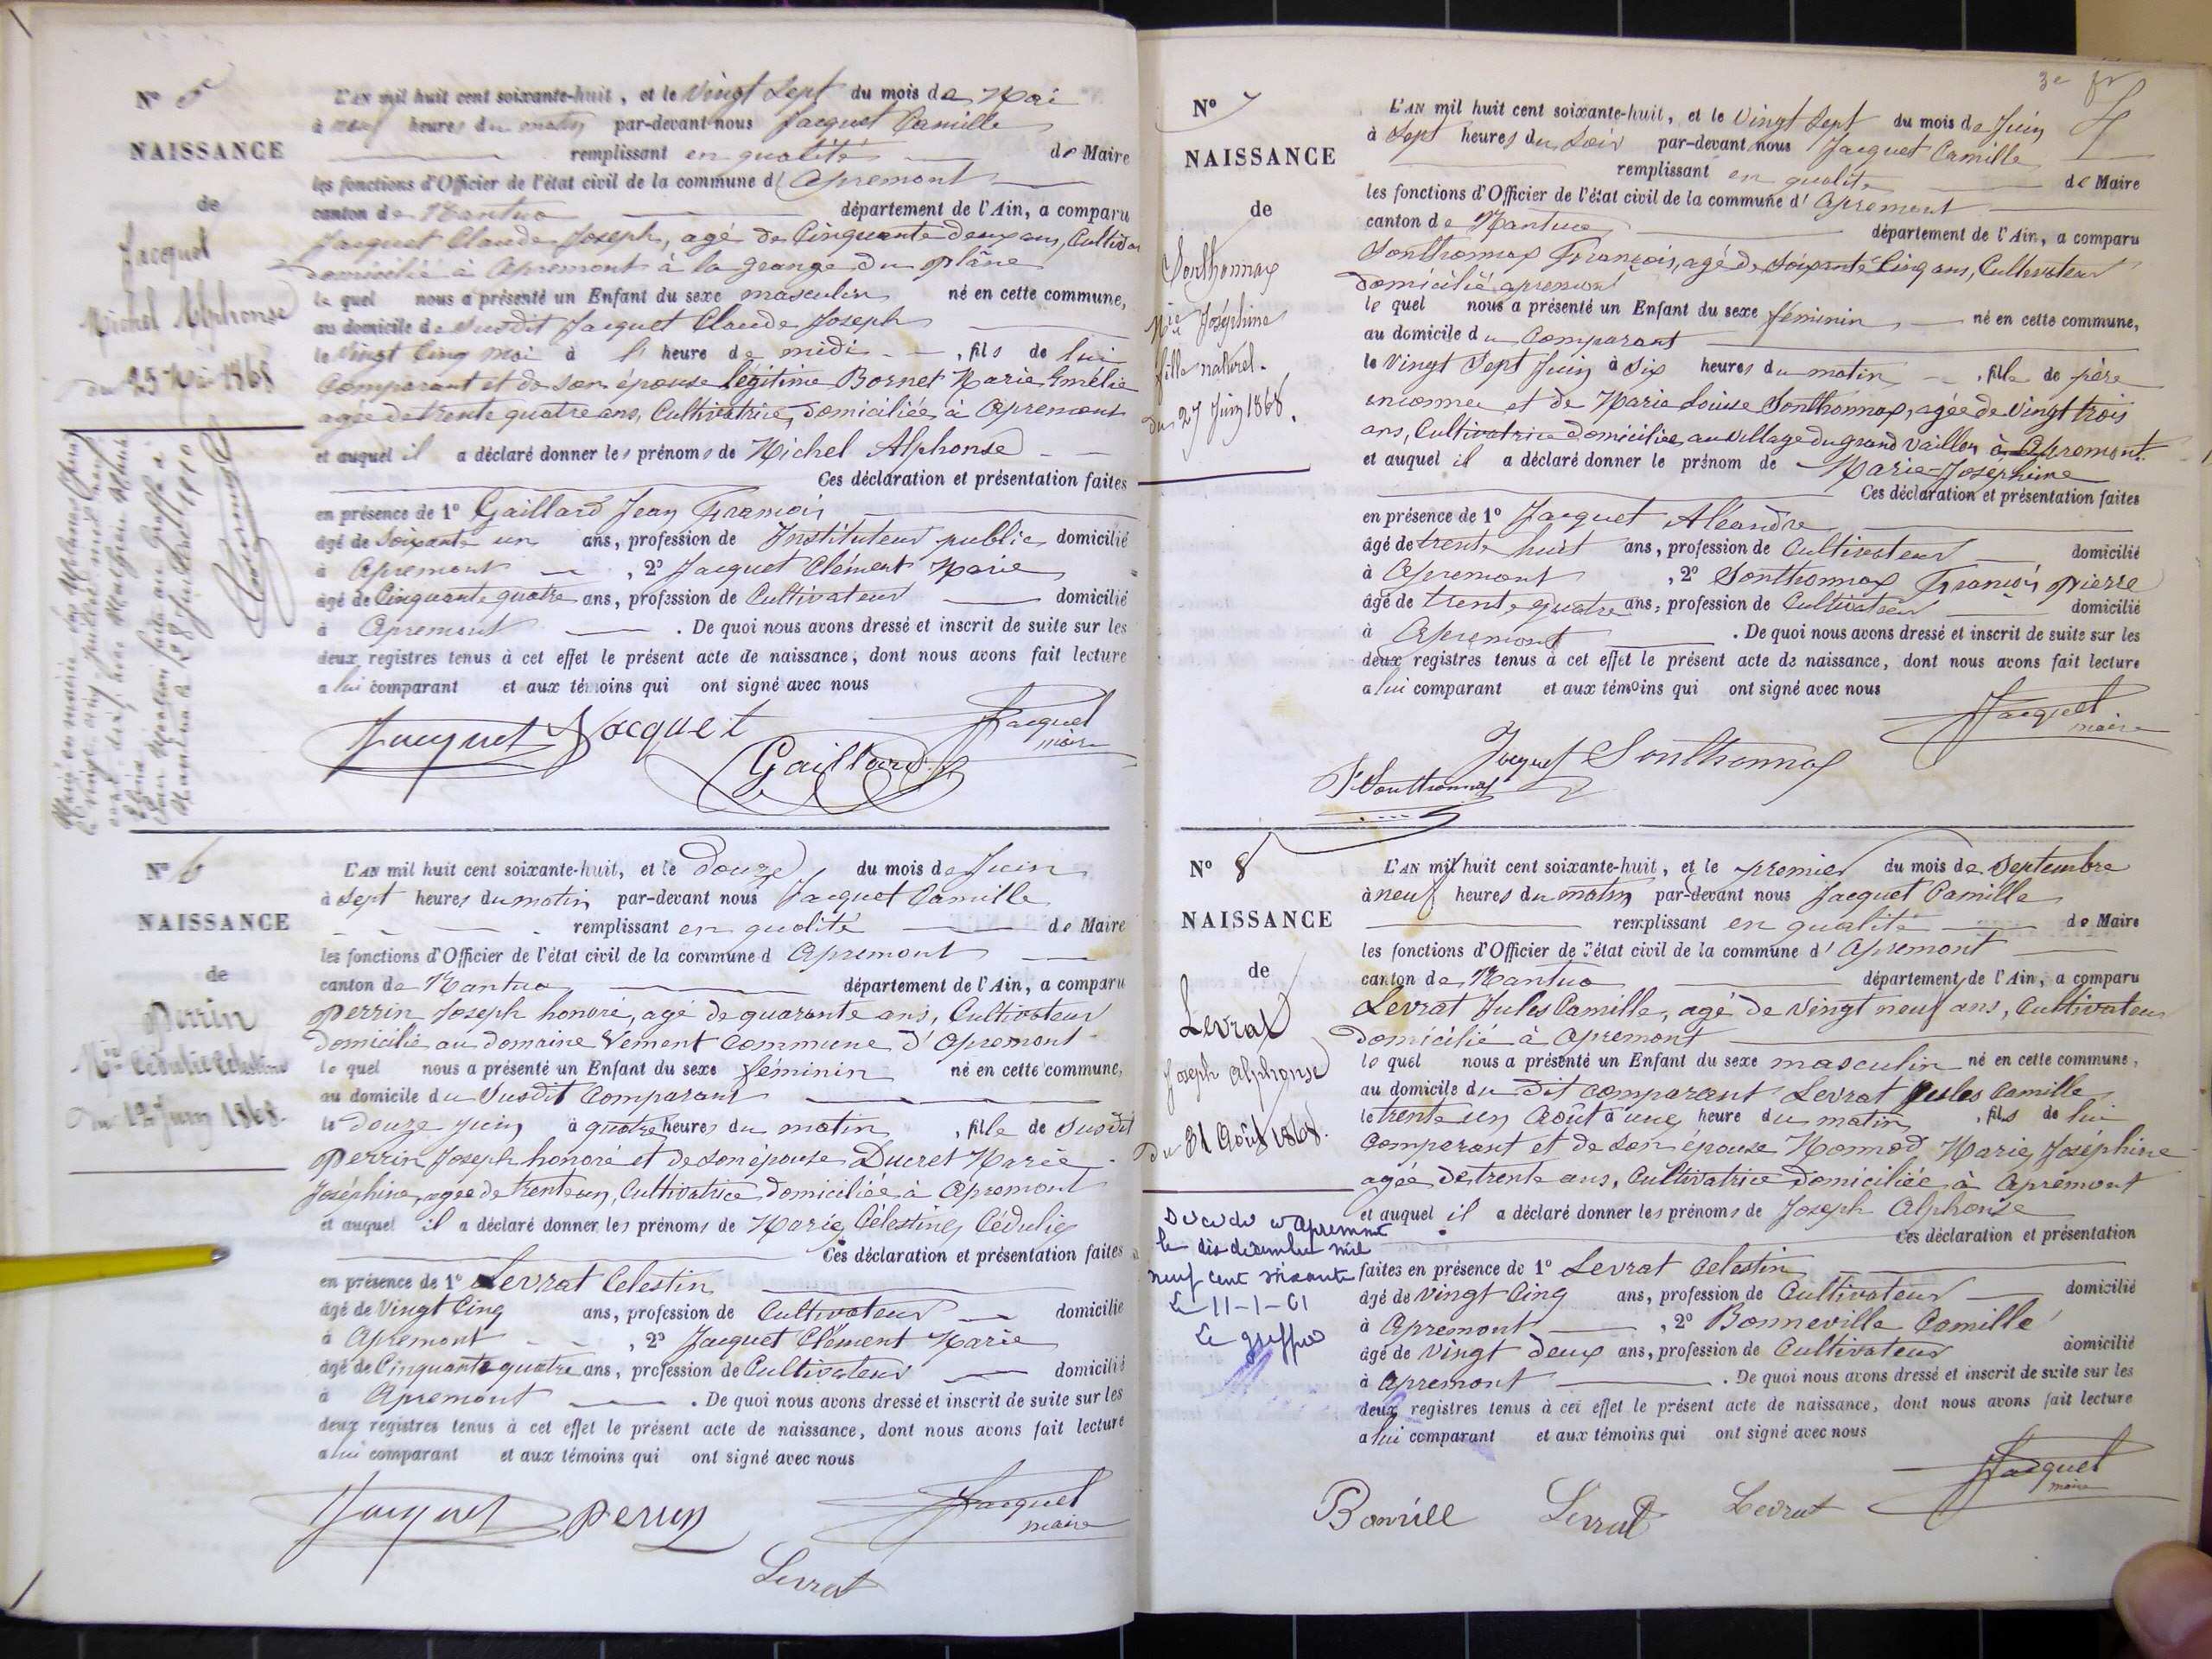 N° 5
NAISSANCE
de
Jacquet
Michel Alphonse
du 25 Mai 1868
L'AN mil huit cent soixante-huit, et le Vingt Sept du mois de Mai
à neuf heures du matin par-devant nous Jacquet Camille
remplissant en qualité de Maire
les fonctions d'Officier de l'état civil de la commune d' Apremont
canton de Nantua département de l'Ain, a comparu
Jacquet Claude Joseph, agé de Cinquante deux ans, Cultivateur
domicilié à Apremont à la grange du plâne
le quel nous a présenté un Enfant du sexe masculin né en cette commune,
au domicile de Susdit Jacquet Claude Joseph
le Vingt Cinq Mai à heure de midi, fils de lui
Comparant et de son épouse légitime Bornet Marie Emélie
agée de trente quatre ans, Cultivatrice, domiciliée à Apremont
et auquel il a déclaré donner les prénoms de Michel Alphonse
Ces déclaration et présentation faites
en présence de 1° Gaillard Jean François
âgé de soixante un ans, profession de Instituteur public domicilié
à Apremont, 2° Jacquet Clément Marie
âgé de Cinquante quatre ans, profession de Cultivateur domicilié
à Apremont. De quoi nous avons dressé et inscrit de suite sur les
deux registres tenus à cet effet le présent acte de naissance, dont nous avons fait lecture
a lui comparant et aux témoins qui ont signé avec nous
Jacquet Jacquet Jacquet
maire
Gaillard
N° 6
NAISSANCE
de
Perrin
Mie Cédulie Célestine
du 12 Juin 1868.
L'AN mil huit cent soixante-huit, et le Douze du mois de Juin
à Sept heures du matin par-devant nous Jacquet Camille
remplissant en qualité de Maire
les fonctions d'Officier de l'état civil de la commune d Apremont
canton de Nantua département de l'Ain, a comparu
Perrin Joseph honoré, agé de quarante ans, Cultivateur
domicilié au domaine Vement Commune d'Apremont
le quel nous a présenté un Enfant du sexe féminin né en cette commune,
au domicile du Susdit Comparant
le Douze Juin à quatre heures du matin, fille de Susdit
Perrin Joseph honoré et de son épouse Ducret Marie
Joséphine, agée de trente un, Cultivatrice domiciliée à Apremont
et auquel il a déclaré donner les prénoms de Marie Célestine Cédulie
Ces déclaration et présentation faites
en présence de 1° Levrat Celestin
âgé de Vingt Cinq ans, profession de Cultivateur domicilié
à Apremont, 2° Jacquet Clément Marie
âgé de Cinquante quatre ans, profession de Cultivateur domicilié
à Apremont. De quoi nous avons dressé et inscrit de suite sur les
deux registres tenus à cet effet le présent acte de naissance, dont nous avons fait lecture
a lui comparant et aux témoins qui ont signé avec nous
Jacquet Perrin Jacquet
maire
Levrat
3e
N° 7
NAISSANCE
de
Sonthonnax
Mie Joséphine
fille naturel.
du 27 Juin 1868.
L'AN mil huit cent soixante-huit, et le Vingt Sept du mois de Juin
à Sept heures du Soir par-devant nous Jacquet Camille
remplissant en qualité de Maire
les fonctions d'Officier de l'état civil de la commune d' Apremont
canton de Nantua département de l'Ain, a comparu
Sonthonnax François, agé de Soixante Cinq ans, Cultivateur
domicilié apremont
le quel nous a présenté un Enfant du sexe féminin, né en cette commune,
au domicile du Comparant
le Vingt Sept Juin à Six heures du matin, fille de père
inconnu et de Marie Louise Sonthonnax, agée de Vingt trois
ans, Cultivatrice domiciliée au village du grand Vaillon à Apremont
et auquel il a déclaré donner le prénom de Marie-Josephine
Ces déclaration et présentation faites
en présence de 1° Jacquet Aléandre
âgé de trente huit ans, profession de Cultivateur domicilié
à Apremont, 2° Sonthonnax François Pierre
âgé de trente quatre ans, profession de Cultivateur domicilié
à Apremont. De quoi nous avons dressé et inscrit de suite sur les
deux registres tenus à cet effet le présent acte de naissance, dont nous avons fait lecture
a lui comparant et aux témoins qui ont signé avec nous
Jacquet
maire
Jacquet Sonthonnax
F Sonthonnax
N° 8
NAISSANCE
de
Levrat
Joseph Alphonse
du 31 Août 1868.
Décédé à Apremont
le dix décembre mil
neuf cent soixante
Le 11-1-61
Le greffier
L'AN mil huit cent soixante-huit, et le premier du mois de Septembre
à neuf heures du matin par-devant nous Jacquet Camille
remplissant en qualité de Maire
les fonctions d'Officier de l'état civil de la commune d' Apremont
canton de Nantua département de l'Ain, a comparu
Levrat Jules Camille, agé de Vingt neuf ans, Cultivateur
domicilié à Apremont
le quel nous a présenté un Enfant du sexe masculin né en cette commune,
au domicile du dit comparant Levrat Jules Camille
le trente un Août à une heure du matin, fils de lui
Comparant et de son épouse Monnod Marie Joséphine
agée de trente ans, Cultivatrice domiciliée à Apremont
et auquel il a déclaré donner les prénoms de Joseph Alphonse
Ces déclaration et présentation
faites en présence de 1° Levrat Celestin
âgé de Vingt Cinq ans, profession de Cultivateur domicilié
à Apremont, 2° Bonneville Camille
âgé de Vingt deux ans, profession de Cultivateur domicilié
à Apremont. De quoi nous avons dressé et inscrit de suite sur les
deux registres tenus à cet effet le présent acte de naissance, dont nous avons fait lecture
a lui comparant et aux témoins qui ont signé avec nous
Jacquet
maire
Bonvill Levrat Levrat